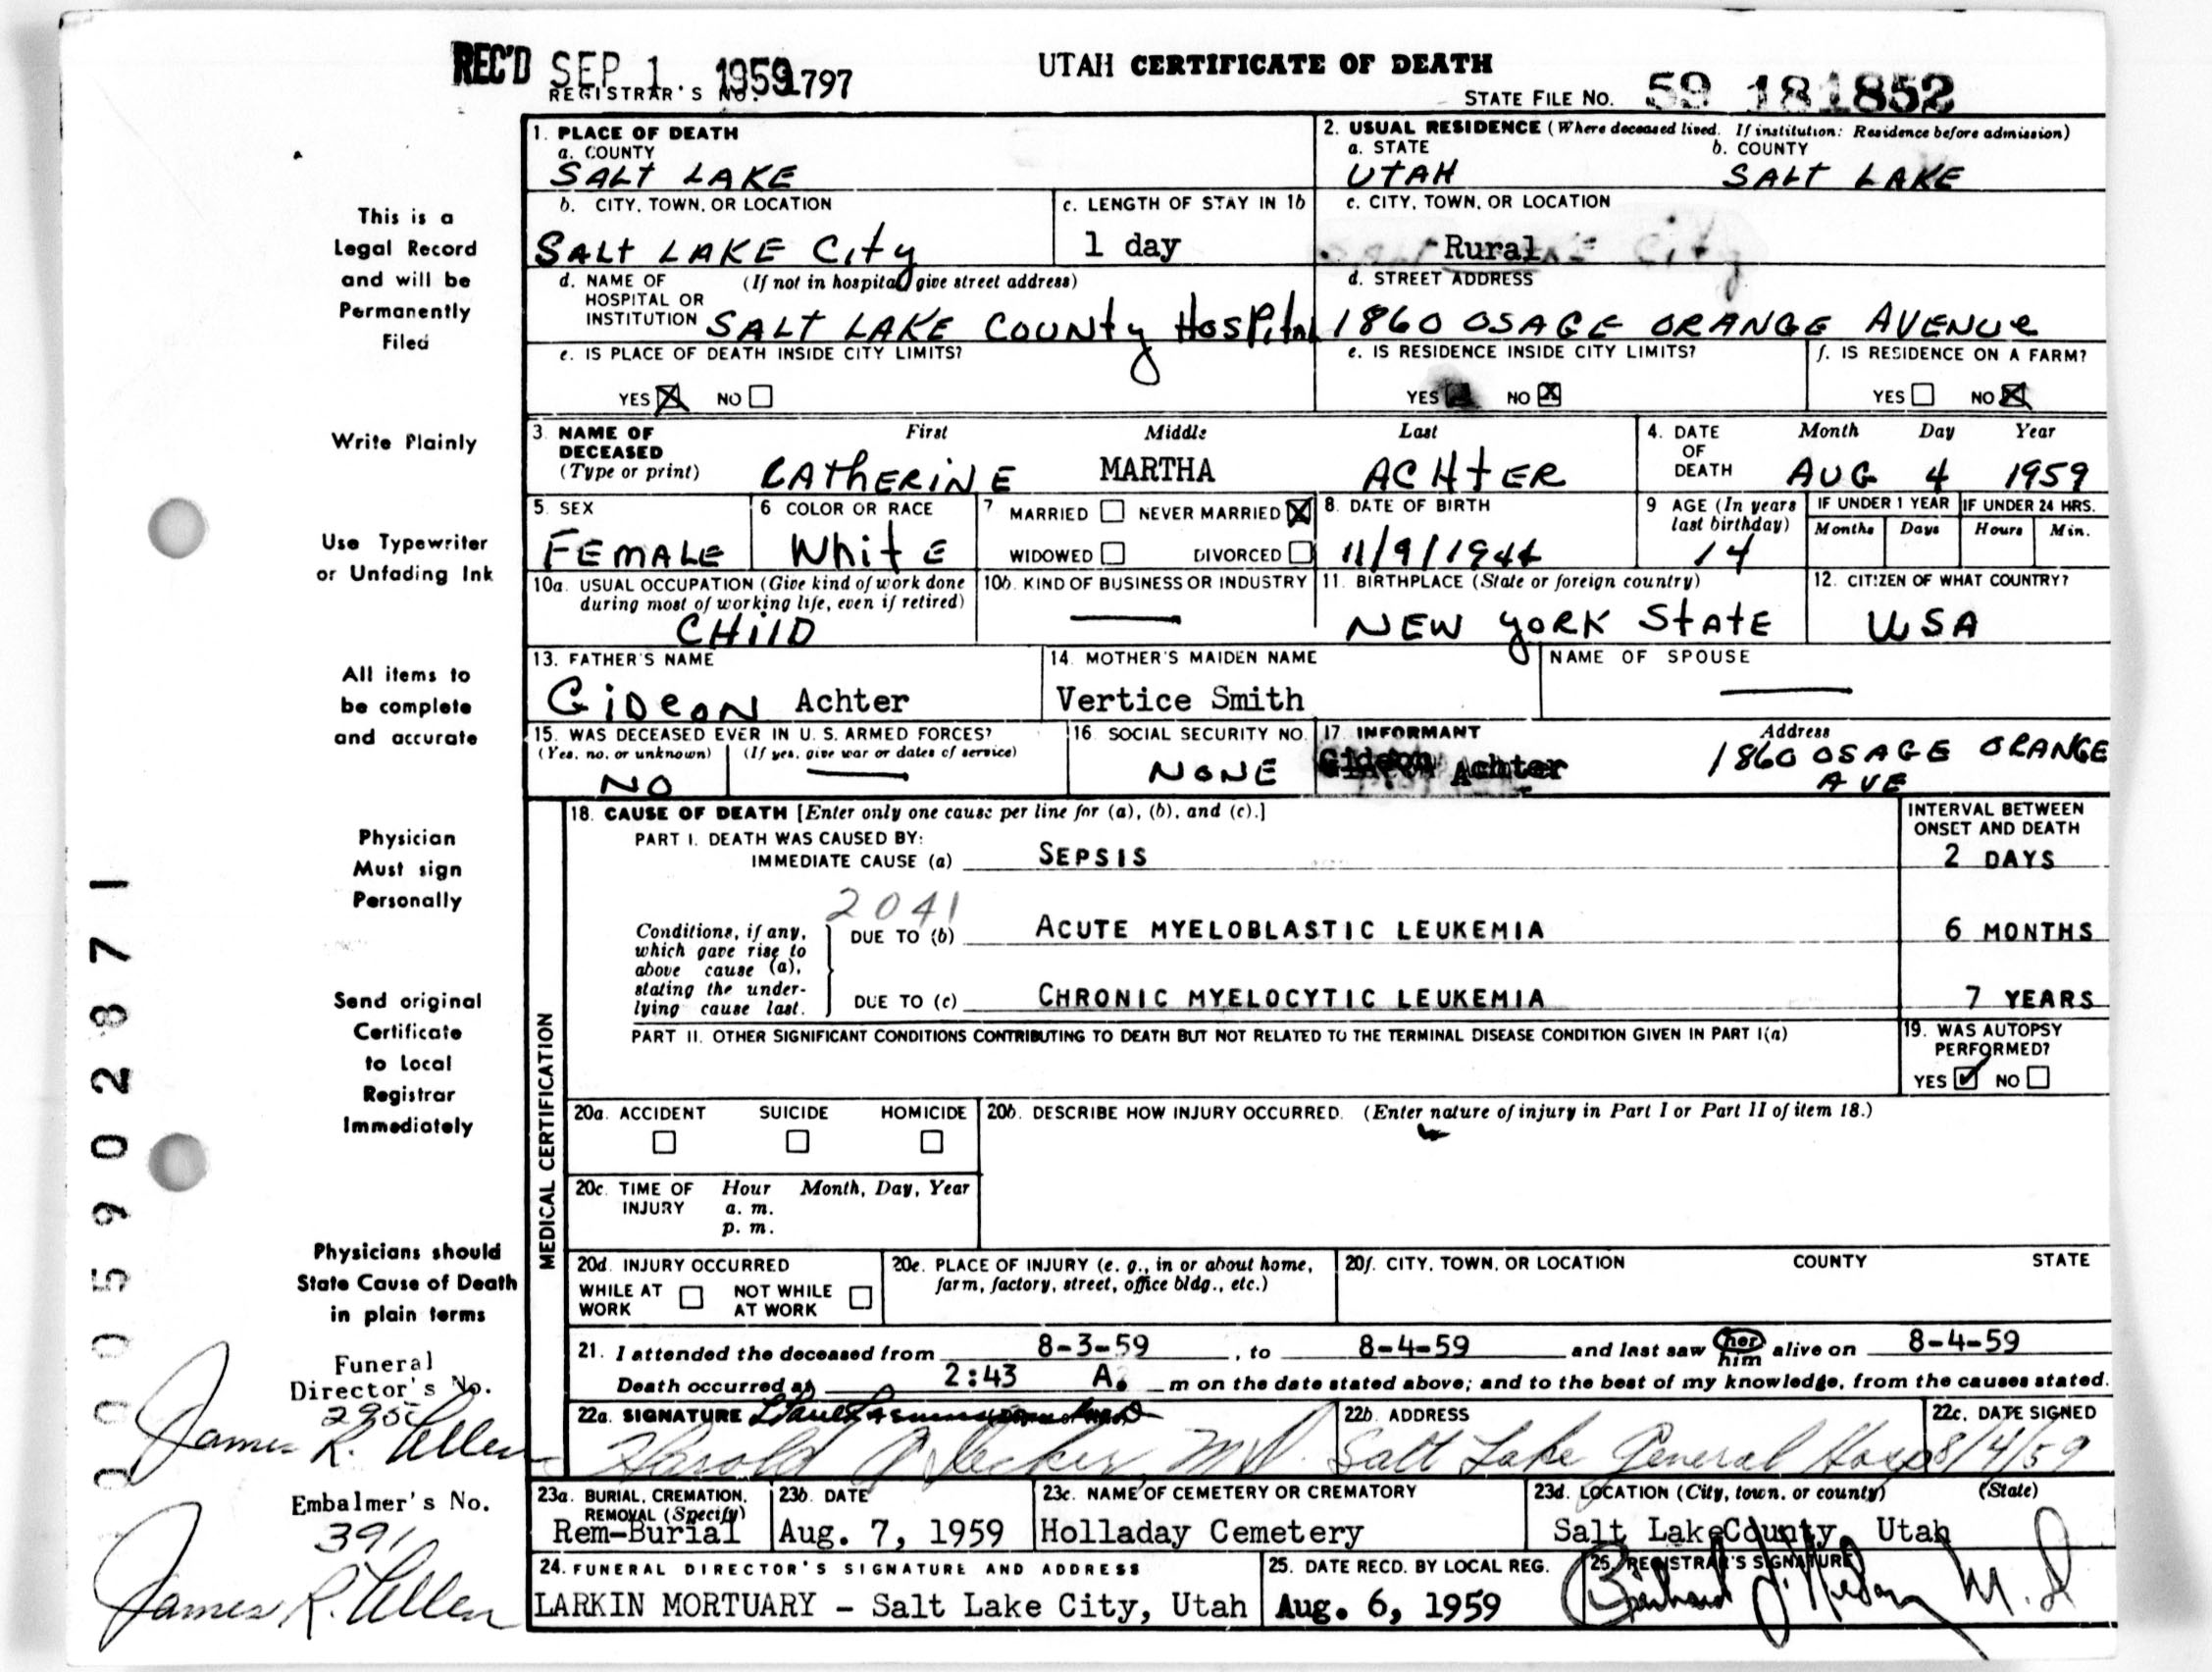 REC'D SEP 1 1959
UTAH CERTIFICATE OF DEATH
REGISTRAR'S NO. 1797
STATE FILE NO. 59 181852
This is a
Legal Record
and will be
Permanently
Filed
Write Plainly
Use Typewriter
or Unfading Ink
All items to
be complete
and accurate
Physician
Must sign
Personally
Send original
Certificate
to Local
Registrar
Immediately
Physicians should
State Cause of Death
in plain terms
Funeral
Director's No.
295
James R. Allen
Embalmer's No.
391
James R. Allen
1. PLACE OF DEATH
a. COUNTY
SALT LAKE
2. USUAL RESIDENCE (Where deceased lived. If institution: Residence before admission)
a. STATE b. COUNTY
UTAH SALT LAKE
b. CITY, TOWN, OR LOCATION
SALT LAKE City
c. LENGTH OF STAY IN 1b
1 day
c. CITY, TOWN, OR LOCATION
Rural
d. NAME OF (If not in hospital, give street address)
HOSPITAL OR
INSTITUTION SALT LAKE COUNTY HOSPITAL
d. STREET ADDRESS
1860 OSAGE ORANGE AVENUE
e. IS PLACE OF DEATH INSIDE CITY LIMITS?
YES NO
e. IS RESIDENCE INSIDE CITY LIMITS?
YES NO
f. IS RESIDENCE ON A FARM?
YES NO
3. NAME OF First Middle Last
DECEASED
(Type or print) CATHERINE MARTHA ACHTER
4. DATE Month Day Year
OF
DEATH AUG 4 1959
5. SEX
FEMALE
6 COLOR OR RACE
White
7 MARRIED NEVER MARRIED
WIDOWED DIVORCED
8. DATE OF BIRTH
11/9/1944
9 AGE (In years
last birthday)
14
IF UNDER 1 YEAR IF UNDER 24 HRS.
Months Days Hours Min.
10a. USUAL OCCUPATION (Give kind of work done
during most of working life, even if retired)
CHILD
10b. KIND OF BUSINESS OR INDUSTRY
11. BIRTHPLACE (State or foreign country)
NEW YORK STATE
12. CITIZEN OF WHAT COUNTRY?
USA
13. FATHER'S NAME
GIDEON Achter
14. MOTHER'S MAIDEN NAME
Vertice Smith
NAME OF SPOUSE
15. WAS DECEASED EVER IN U. S. ARMED FORCES?
(Yes, no, or unknown) (If yes, give war or dates of service)
NO
16. SOCIAL SECURITY NO.
NONE
17. INFORMANT Address
Gideon Achter 1860 OSAGE ORANGE
AVE
MEDICAL CERTIFICATION
18. CAUSE OF DEATH [Enter only one cause per line for (a), (b), and (c).]
INTERVAL BETWEEN
ONSET AND DEATH
PART I. DEATH WAS CAUSED BY:
IMMEDIATE CAUSE (a) SEPSIS 2 DAYS
2041
Conditions, if any,
which gave rise to
above cause (a),
stating the under-
lying cause last.
DUE TO (b) ACUTE MYELOBLASTIC LEUKEMIA 6 MONTHS
DUE TO (c) CHRONIC MYELOCYTIC LEUKEMIA 7 YEARS
PART II. OTHER SIGNIFICANT CONDITIONS CONTRIBUTING TO DEATH BUT NOT RELATED TO THE TERMINAL DISEASE CONDITION GIVEN IN PART I(a)
19. WAS AUTOPSY
PERFORMED?
YES NO
20a. ACCIDENT SUICIDE HOMICIDE
20b. DESCRIBE HOW INJURY OCCURRED. (Enter nature of injury in Part I or Part II of item 18.)
20c. TIME OF Hour Month, Day, Year
INJURY a. m.
p. m.
20d. INJURY OCCURRED
WHILE AT NOT WHILE
WORK AT WORK
20e. PLACE OF INJURY (e. g., in or about home,
farm, factory, street, office bldg., etc.)
20f. CITY, TOWN, OR LOCATION COUNTY STATE
21. I attended the deceased from 8-3-59, to 8-4-59 and last saw her him alive on 8-4-59
Death occurred at 2:43 A. m on the date stated above; and to the best of my knowledge, from the causes stated.
22a. SIGNATURE
Harold J Decker, MD.
22b. ADDRESS
Salt Lake General Hosp
22c. DATE SIGNED
8/4/59
23a. BURIAL, CREMATION,
REMOVAL (Specify)
Rem-Burial
23b. DATE
Aug. 7, 1959
23c. NAME OF CEMETERY OR CREMATORY
Holladay Cemetery
23d. LOCATION (City, town, or county) (State)
Salt Lake County, Utah
24. FUNERAL DIRECTOR'S SIGNATURE AND ADDRESS
LARKIN MORTUARY - Salt Lake City, Utah
25. DATE RECD. BY LOCAL REG.
Aug. 6, 1959
25. REGISTRAR'S SIGNATURE
M. D
005902871